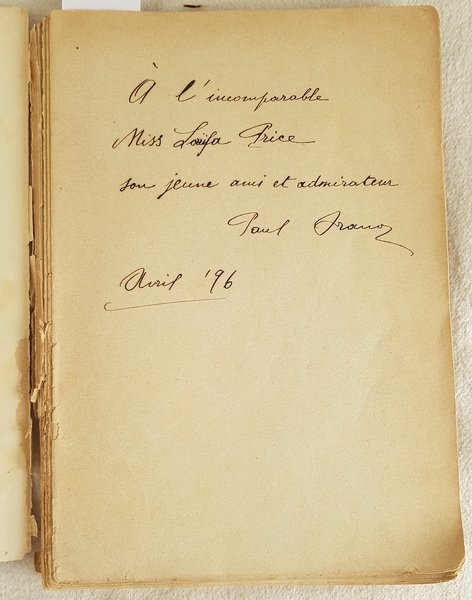 À l'incomparable
Miss Louisa Price
son jeune ami et admirateur
Paul Franz
Avril '96